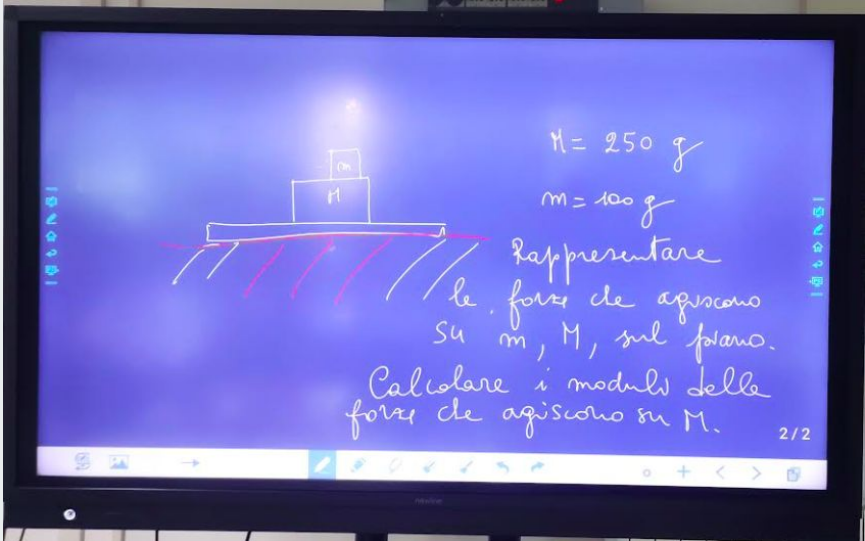 m
M
M = 250 g
m = 100 g
Rappresentare
le forze che agiscono
su m, M, sul piano.
Calcolare i moduli delle
forze che agiscono su M.
2/2